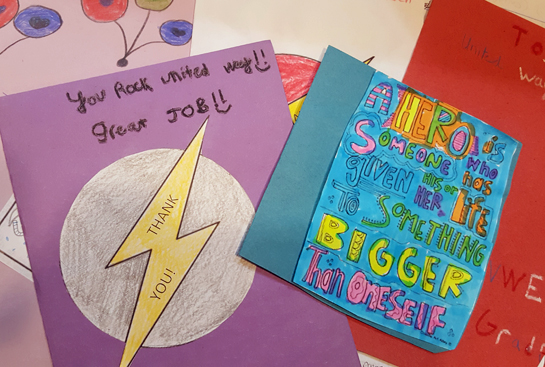 You Rock united way!!
great JOB!!
THANK
YOU!
A HERO is
SOMEONE WHO
has
GIVEN HIS OR
HER life
TO SOMETHING
BIGGER
Than ONESELF
To
United way
WE
Grad